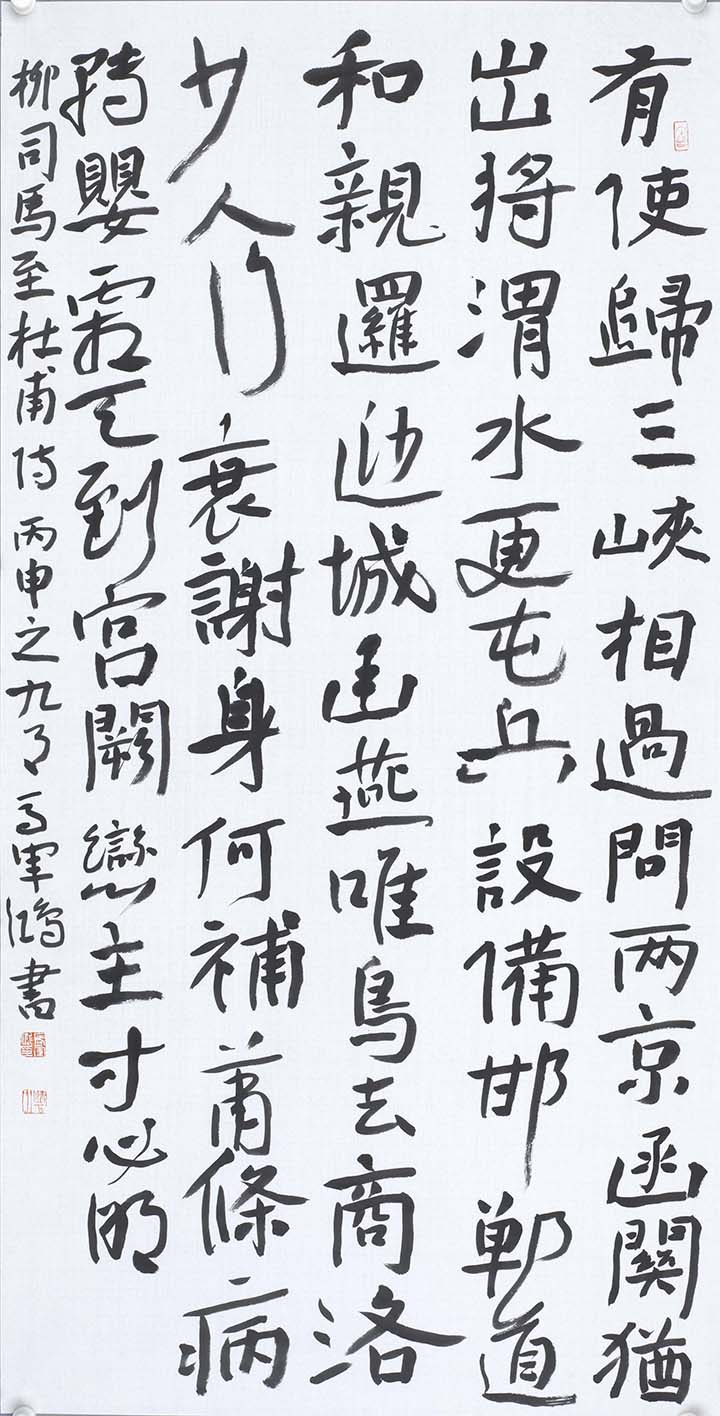 有使歸三峽相過問两京函關猶
出將渭水更屯兵設備邯鄲道
和親邏逤城幽燕唯鳥去商洛
少人行衰謝身何補蕭條病
轉嬰霜天到宮闕戀主寸心明
柳司馬至杜甫诗丙申之九月軍鴻書